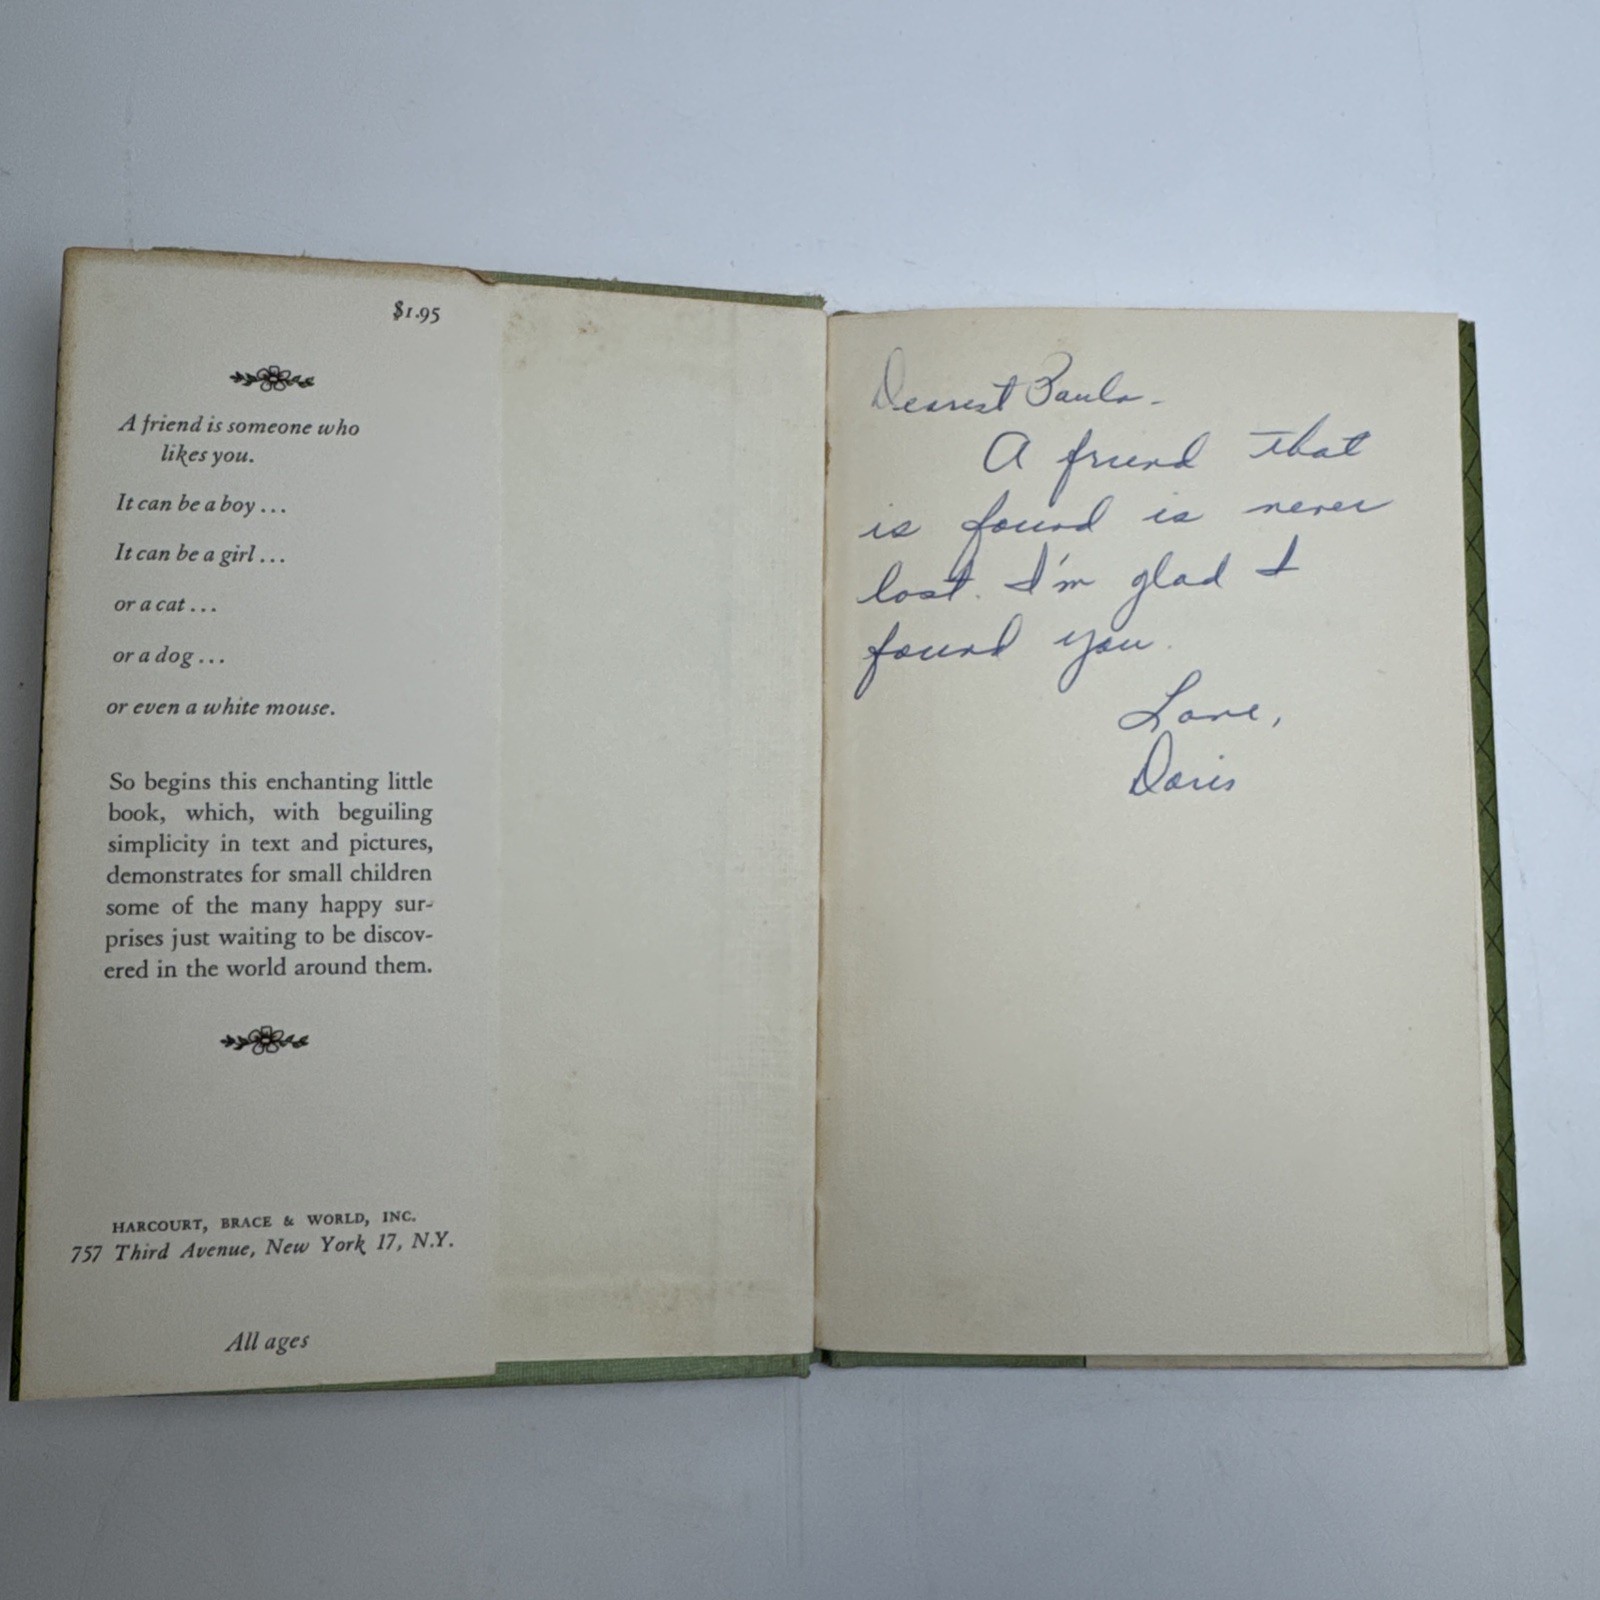 $1.95
A friend is someone who
likes you.
It can be a boy...
It can be a girl...
or a cat...
or a dog...
or even a white mouse.
So begins this enchanting little
book, which, with beguiling
simplicity in text and pictures,
demonstrates for small children
some of the many happy sur-
prises just waiting to be discov-
ered in the world around them.
HARCOURT, BRACE & WORLD, INC.
757 Third Avenue, New York 17, N.Y.
All ages
Dearest Paula -
A friend that
is found is never
lost. I'm glad I
found you.
Love,
Doris